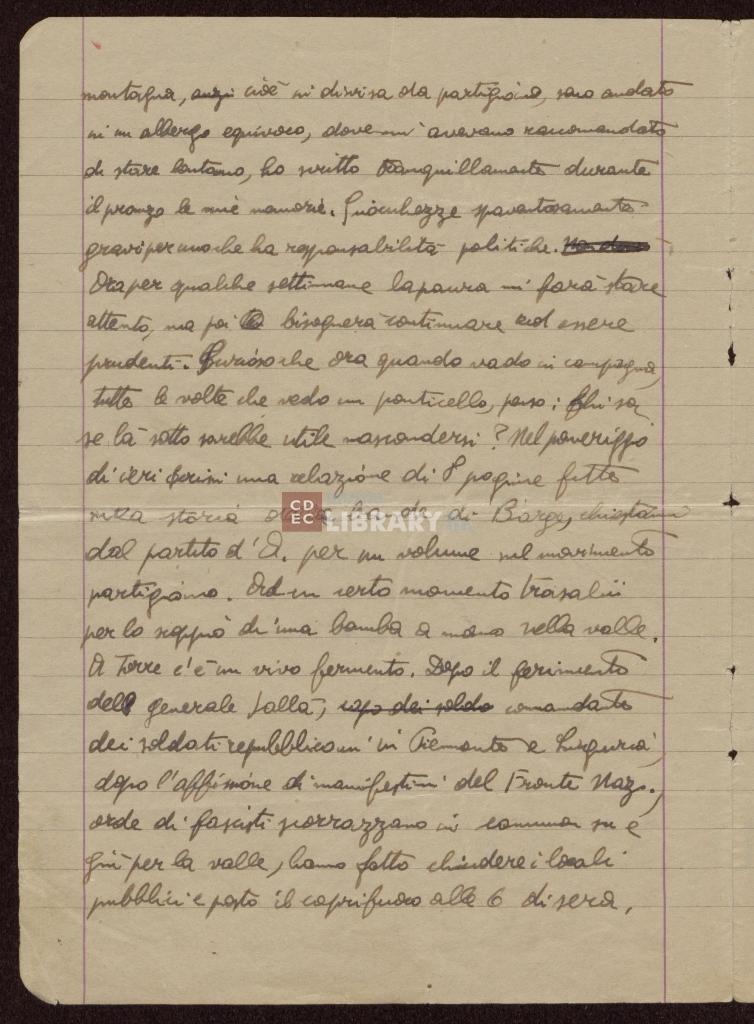 montagna, anzi cioè in divisa da partigiano, sono andato
in un albergo equivoco, dove mi avevano raccomandato
di stare lontano, ho scritto tranquillamente durante
il pranzo le mie memorie. Sciocchezze spaventosamente
gravi per uno che ha responsabilità politiche.
Ora per qualche settimana la paura mi farà stare
attento, ma poi bisognerà continuare ad essere
prudenti. Curioso che ora quando vado in campagna,
tutte le volte che vedo un ponticello, penso: Chi sa
se là sotto sarebbe utile nascondersi? Nel pomeriggio
di ieri scrissi una relazione di 8 pagine fitte
sulla storia della di Barge, chiestami
dal partito d'A. per un volume sul movimento
partigiano. Ad un certo momento trasalii
per lo scoppio di una bomba a mano nella valle.
A Torre c'è un vivo fermento. Dopo il ferimento
del generale Jallà, capo dei soldo comandante
dei soldati repubblicani in Piemonte e Liguria,
dopo l'affissione di manifestini del Fronte Naz.,
orde di fascisti scorrazzano in camion su e
giù per la valle, hanno fatto chiudere i locali
pubblici e posto il coprifuoco alle 6 di sera.
CDEC
LIBRARY